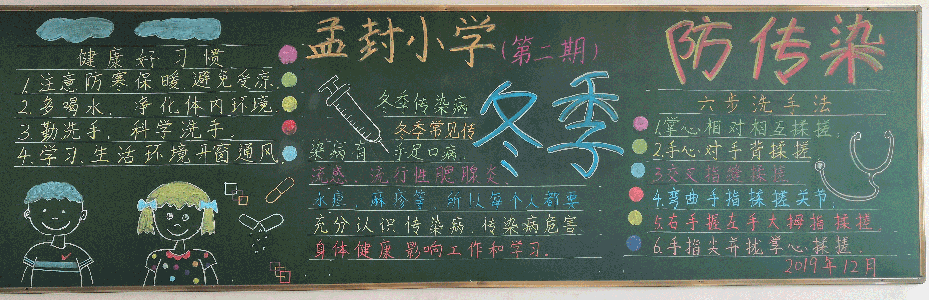 健康好习惯
1.注意防寒保暖,避免受凉.
2.多喝水,净化体内环境
3.勤洗手,科学洗手.
4.学习、生活环境开窗通风
孟封小学(第二期)
冬季
冬季传染病
冬季常见传
染病有 手足口病.
流感、流行性腮腺炎、
水痘,麻疹等,所以每个人都要
充分认识传染病,传染病危害
身体健康,影响工作和学习.
防传染
六步洗手法
1.掌心相对相互揉搓.
2.手心对手背揉搓
3.交叉指缝揉搓
4.弯曲手指揉搓关节.
5.右手握左手大拇指揉搓
6.手指尖并拢掌心揉搓
2019年12月